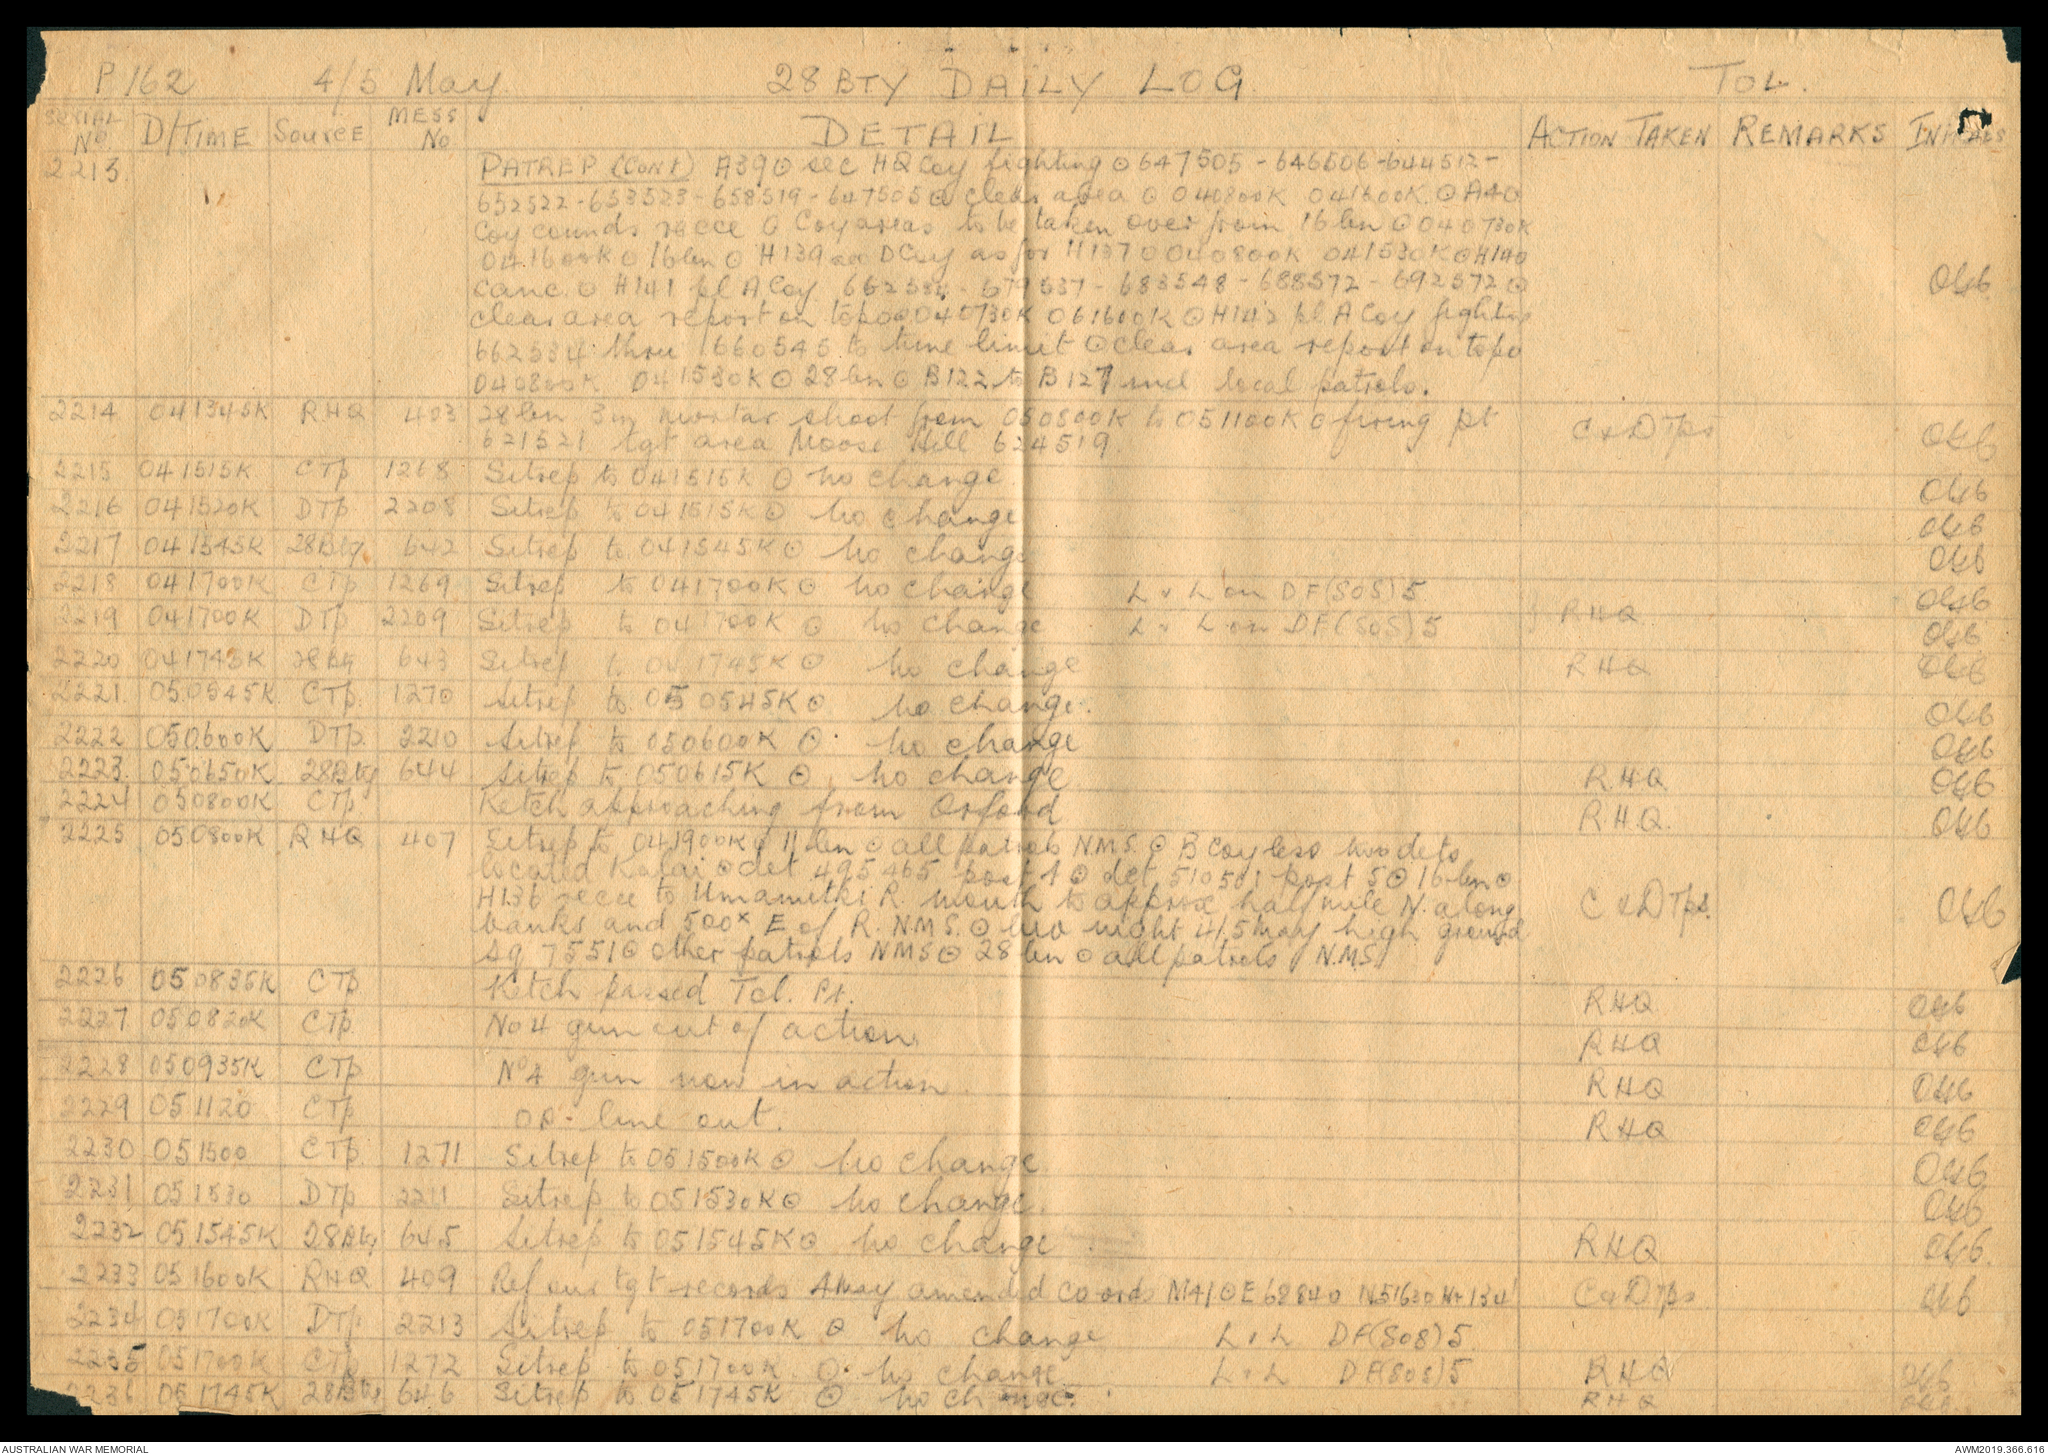 P 162 4/5 May 28 BTY DAILY LOG TOL.
SERIAL No D/TIME Source MESS No DETAIL ACTION TAKEN REMARKS INITIALS
2213. PATREP (CONT) A39 ⊙ sec HQ Coy fighting ⊙ 647505 - 646506 - 644512 -
652522 - 653523 - 658519 - 647505 ⊙ clear area ⊙ 040800K 041600K ⊙ A40
Coy comnds recce ⊙ Coy areas to be taken over from 16 bn ⊙ 040730K
041600K ⊙ 16 bn ⊙ H139 sec D Coy as for H137 ⊙ 040800K 041530K ⊙ H140
canc ⊙ H141 pl A Coy 662534 - 679537 - 683548 - 688572 - 692572 ⊙
clear area report on topo ⊙ 040730K 061600K ⊙ H142 pl A Coy fighting
662534 thru 660545 to time limit ⊙ clear area report on topo
040800K 041530K ⊙ 28 bn ⊙ B122 to B127 incl local patrols.
2214 041345K RHQ 403 28 bn 3in mortar shoot from 050800K to 051100K ⊙ firing pt C & D Tps
621521 tgt area Moose Hill 624519.
2215 041515K C Tp 1268 Sitrep to 041515K ⊙ no change
2216 041520K D Tp 2208 Sitrep to 041515K ⊙ no change
2217 041545K 28 Bty 642 Sitrep to 041545K ⊙ no change
2218 041700K C Tp 1269 Sitrep to 041700K ⊙ no change L & L on DF(SOS) 5
2219 041700K D Tp 2209 Sitrep to 041700K ⊙ no change L & L on DF(SOS) 5 RHQ
2220 041745K 28 Bty 643 Sitrep to 041745K ⊙ no change RHQ
2221. 050545K C Tp. 1270 Sitrep to 050545K ⊙ no change.
2222 050600K D Tp 2210 Sitrep to 050600K ⊙ no change
2223. 050650K 28 Bty 644 Sitrep to 050615K ⊙ no change RHQ
2224 050800K C Tp Ketch approaching from Orford RHQ.
2225 050800K RHQ 407 Sitrep to 041900K ⊙ 11 bn ⊙ all patrols N.M.S. ⊙ B Coy less two dets
located Kalai ⊙ det 495465 post 4 ⊙ det 510501 post 5 ⊙ 16 bn ⊙
H136 recce to Umamutki R. mouth to approx half mile N. along C & D Tps.
banks and 500x E of R. N.M.S. ⊙ biv night 4/5 May high ground
sq 7551 ⊙ other patrols NMS ⊙ 28 bn ⊙ all patrols N.M.S.
2226 050835K C Tp Ketch passed Tol. Pt. RHQ
2227 050820K C Tp No 4 gun out of action. RHQ
2228 050935K C Tp No 4 gun now in action. RHQ
2229 051120 C Tp OP. line out. RHQ
2230 051500 C Tp 1271 Sitrep to 051500K ⊙ no change.
2231 051530 D Tp 2211 Sitrep to 051530K ⊙ no change.
2232 051545K 28 Bty 645 Sitrep to 051545K ⊙ no change. RHQ
2233 051600K RHQ 409 Ref our tgt records 4 May amended co-ords M41 ⊙ E 62840 N 51630 Ht 134' C & D Tps
2234 051700K D Tp 2213 Sitrep to 051700K ⊙ no change L & L DF(SOS) 5.
2235 051700K C Tp 1272 Sitrep to 051700K ⊙ no change L & L DF(SOS) 5 RHQ
2236 051745K 28 Bty 646 Sitrep to 051745K ⊙ no change. RHQ
AUSTRALIAN WAR MEMORIAL AWM2019.366.616